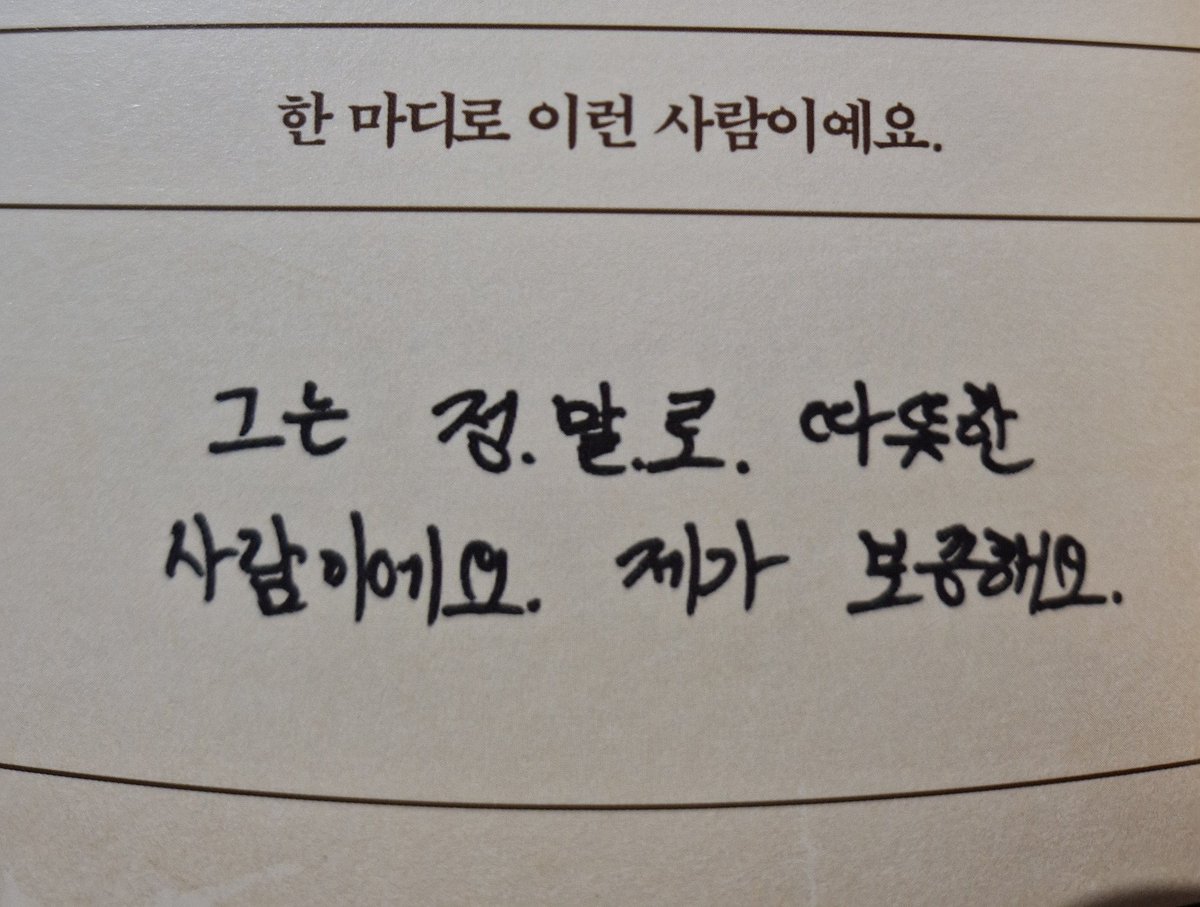 한 마디로 이런 사람이예요.
그는 정.말.로. 따뜻한
사람이에요. 제가 보증해요.